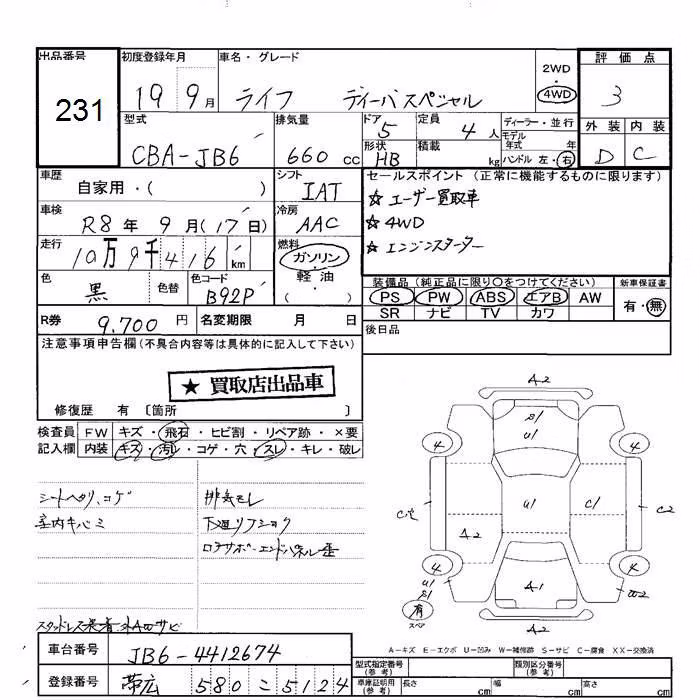 出品番号 231
初度登録年月 19 9月
車名・グレード ライフ ディーバスペシャル
2WD・4WD
評価点 3
外装 D 内装 C
型式 CBA-JB6
排気量 660 cc
ドア 5
定員 4人
形状 HB
積載 kg
ディーラー・並行
モデル年式 年
ハンドル 左・右
車歴 自家用・( )
シフト IAT
車検 R8年 9月(17日)
冷房 AAC
走行 10万9千416 km
燃料 ガソリン・軽油・( )
色 黒 色替
色コード B92P
R券 9,700円
名変期限 月 日
セールスポイント(正常に機能するものに限ります)
☆ユーザー買取車
☆4WD
☆エンジンスターター
装備品(純正品に限り○をつけてください)
新車保証書 有・無
PS PW ABS エアB AW
SR ナビ TV カワ
後日品
注意事項申告欄(不具合内容等は具体的に記入して下さい)
★買取店出品車
修復歴 有 〔箇所 〕
検査員記入欄
FW キズ・飛石・ヒビ割・リペア跡・×要
内装 キズ・汚レ・コゲ・穴・スレ・キレ・破レ
シートヘタリ、コゲ
室内キバミ
排気モレ
下廻リフショク
スタッドレス装着
A2
S1
U1
4
4
U1
C1
C2
A2
4
4
U1
S1
A1
W2
有
スペア
A2
A-キズ E-エクボ U-凹み W-補修跡 S-サビ C-腐食 XX-交換済
車台番号 JB6-4412674
登録番号 帯広 580 こ 5124
型式指定番号(参考)
類別区分番号(参考)
車庫証明用(参考) 長さ cm 幅 cm 高さ cm